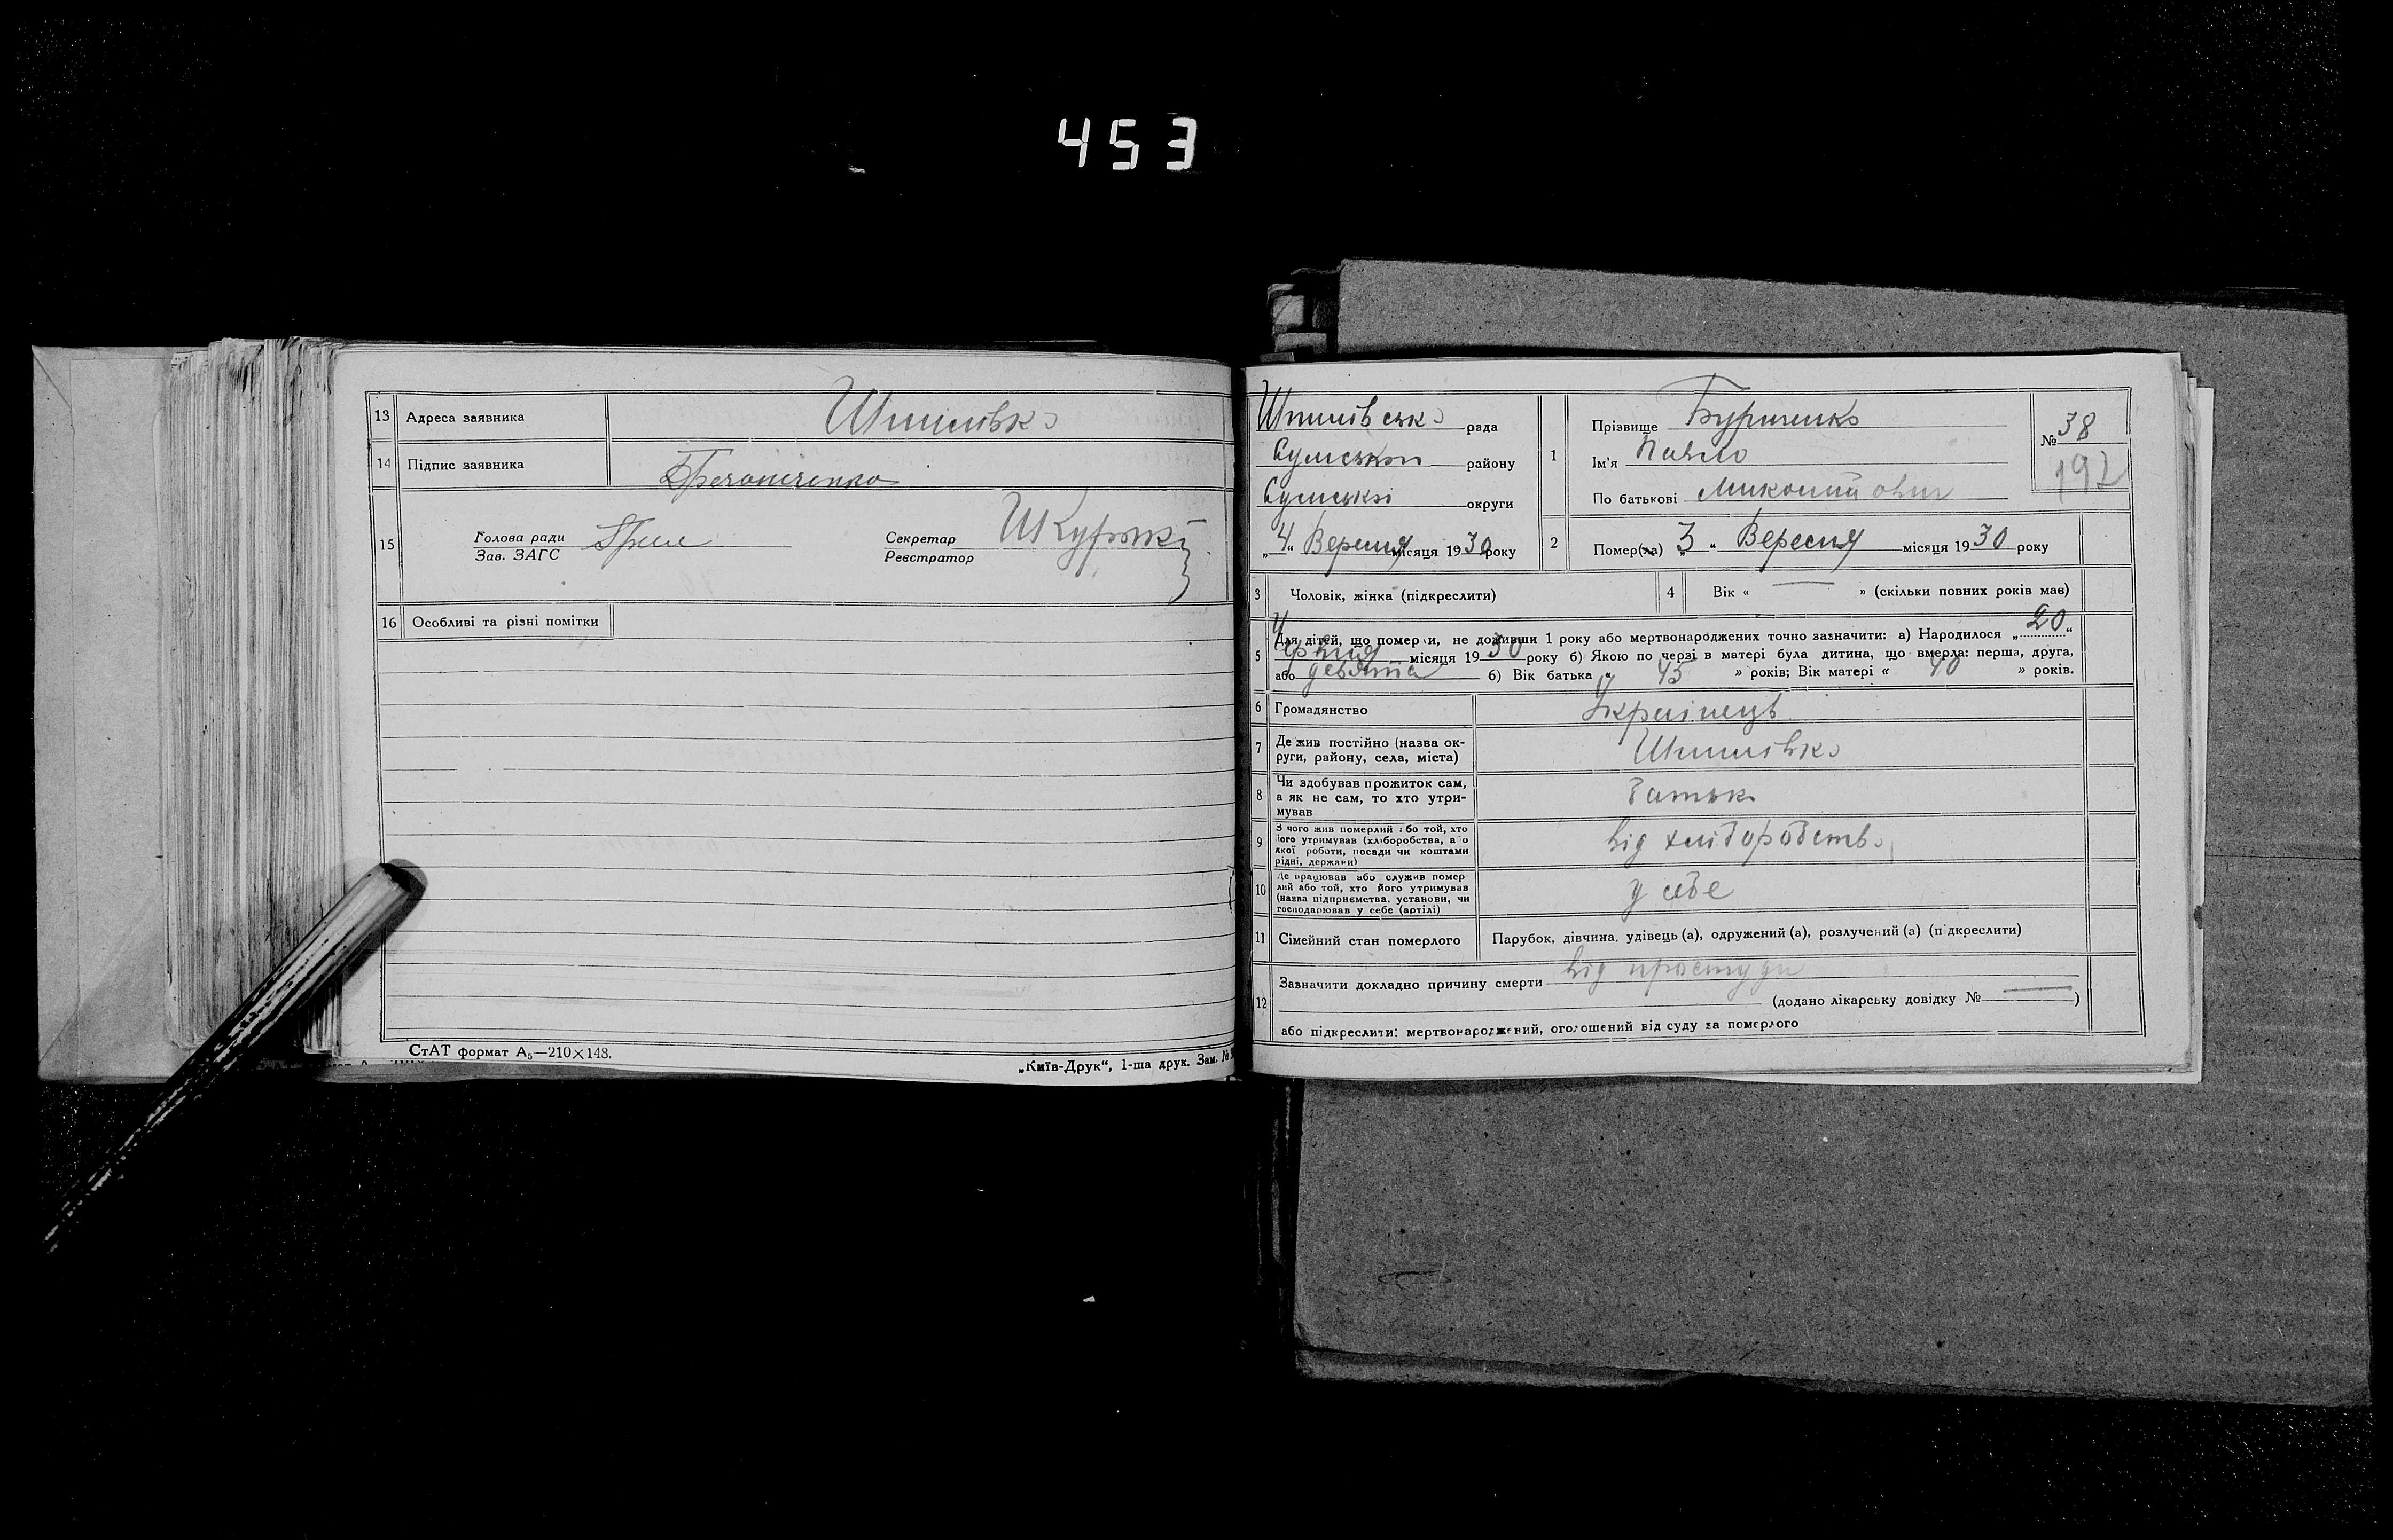 453
13 Адреса заявника Шпилівка
14 Підпис заявника
15 Голова ради
Зав. ЗАГС
Секретар
Реєстратор
16 Особливі та різні помітки
СтАТ формат А₅—210×148.
„Київ-Друк“, 1-ша друк. Зам. №
Шпилівська рада
Сумського району
Сумської округи
„4“ Вересня місяця 1930 року
1 Прізвище Буриченко
Ім'я Павло
По батькові Миколайович
№ 38
197
2 Помер(ла) 3 „ Вересня місяця 1930 року
3 Чоловік, жінка (підкреслити)
4 Вік « — » (скільки повних років мав)
5 Для дітей, що померли, не доживши 1 року або мертвонароджених точно зазначити: а) Народилося „20“
Червня місяця 1930 року б) Якою по черзі в матері була дитина, що вмерла: перша, друга,
або девята б) Вік батька « 45 » років; Вік матері « 40 » років.
6 Громадянство Українець
7 Де жив постійно (назва ок-
руги, району, села, міста) Шпилівка
8 Чи здобував прожиток сам,
а як не сам, то хто утри-
мував батько
9 З чого жив померлий або той, хто
його утримував (хліборобства, з
якої роботи, посади чи коштами
рідні, держави) від хліборобства
10 Де працював або служив помер-
лий або той, хто його утримував
(назва підприємства, установи, чи
господарював у себе (артілі) у себе
11 Сімейний стан померлого Парубок, дівчина, удівець (а), одружений (а), розлучений (а) (підкреслити)
12 Зазначити докладно причину смерти від простуди
(додано лікарську довідку № — )
або підкреслити: мертвонароджений, оголошений від суду за померлого